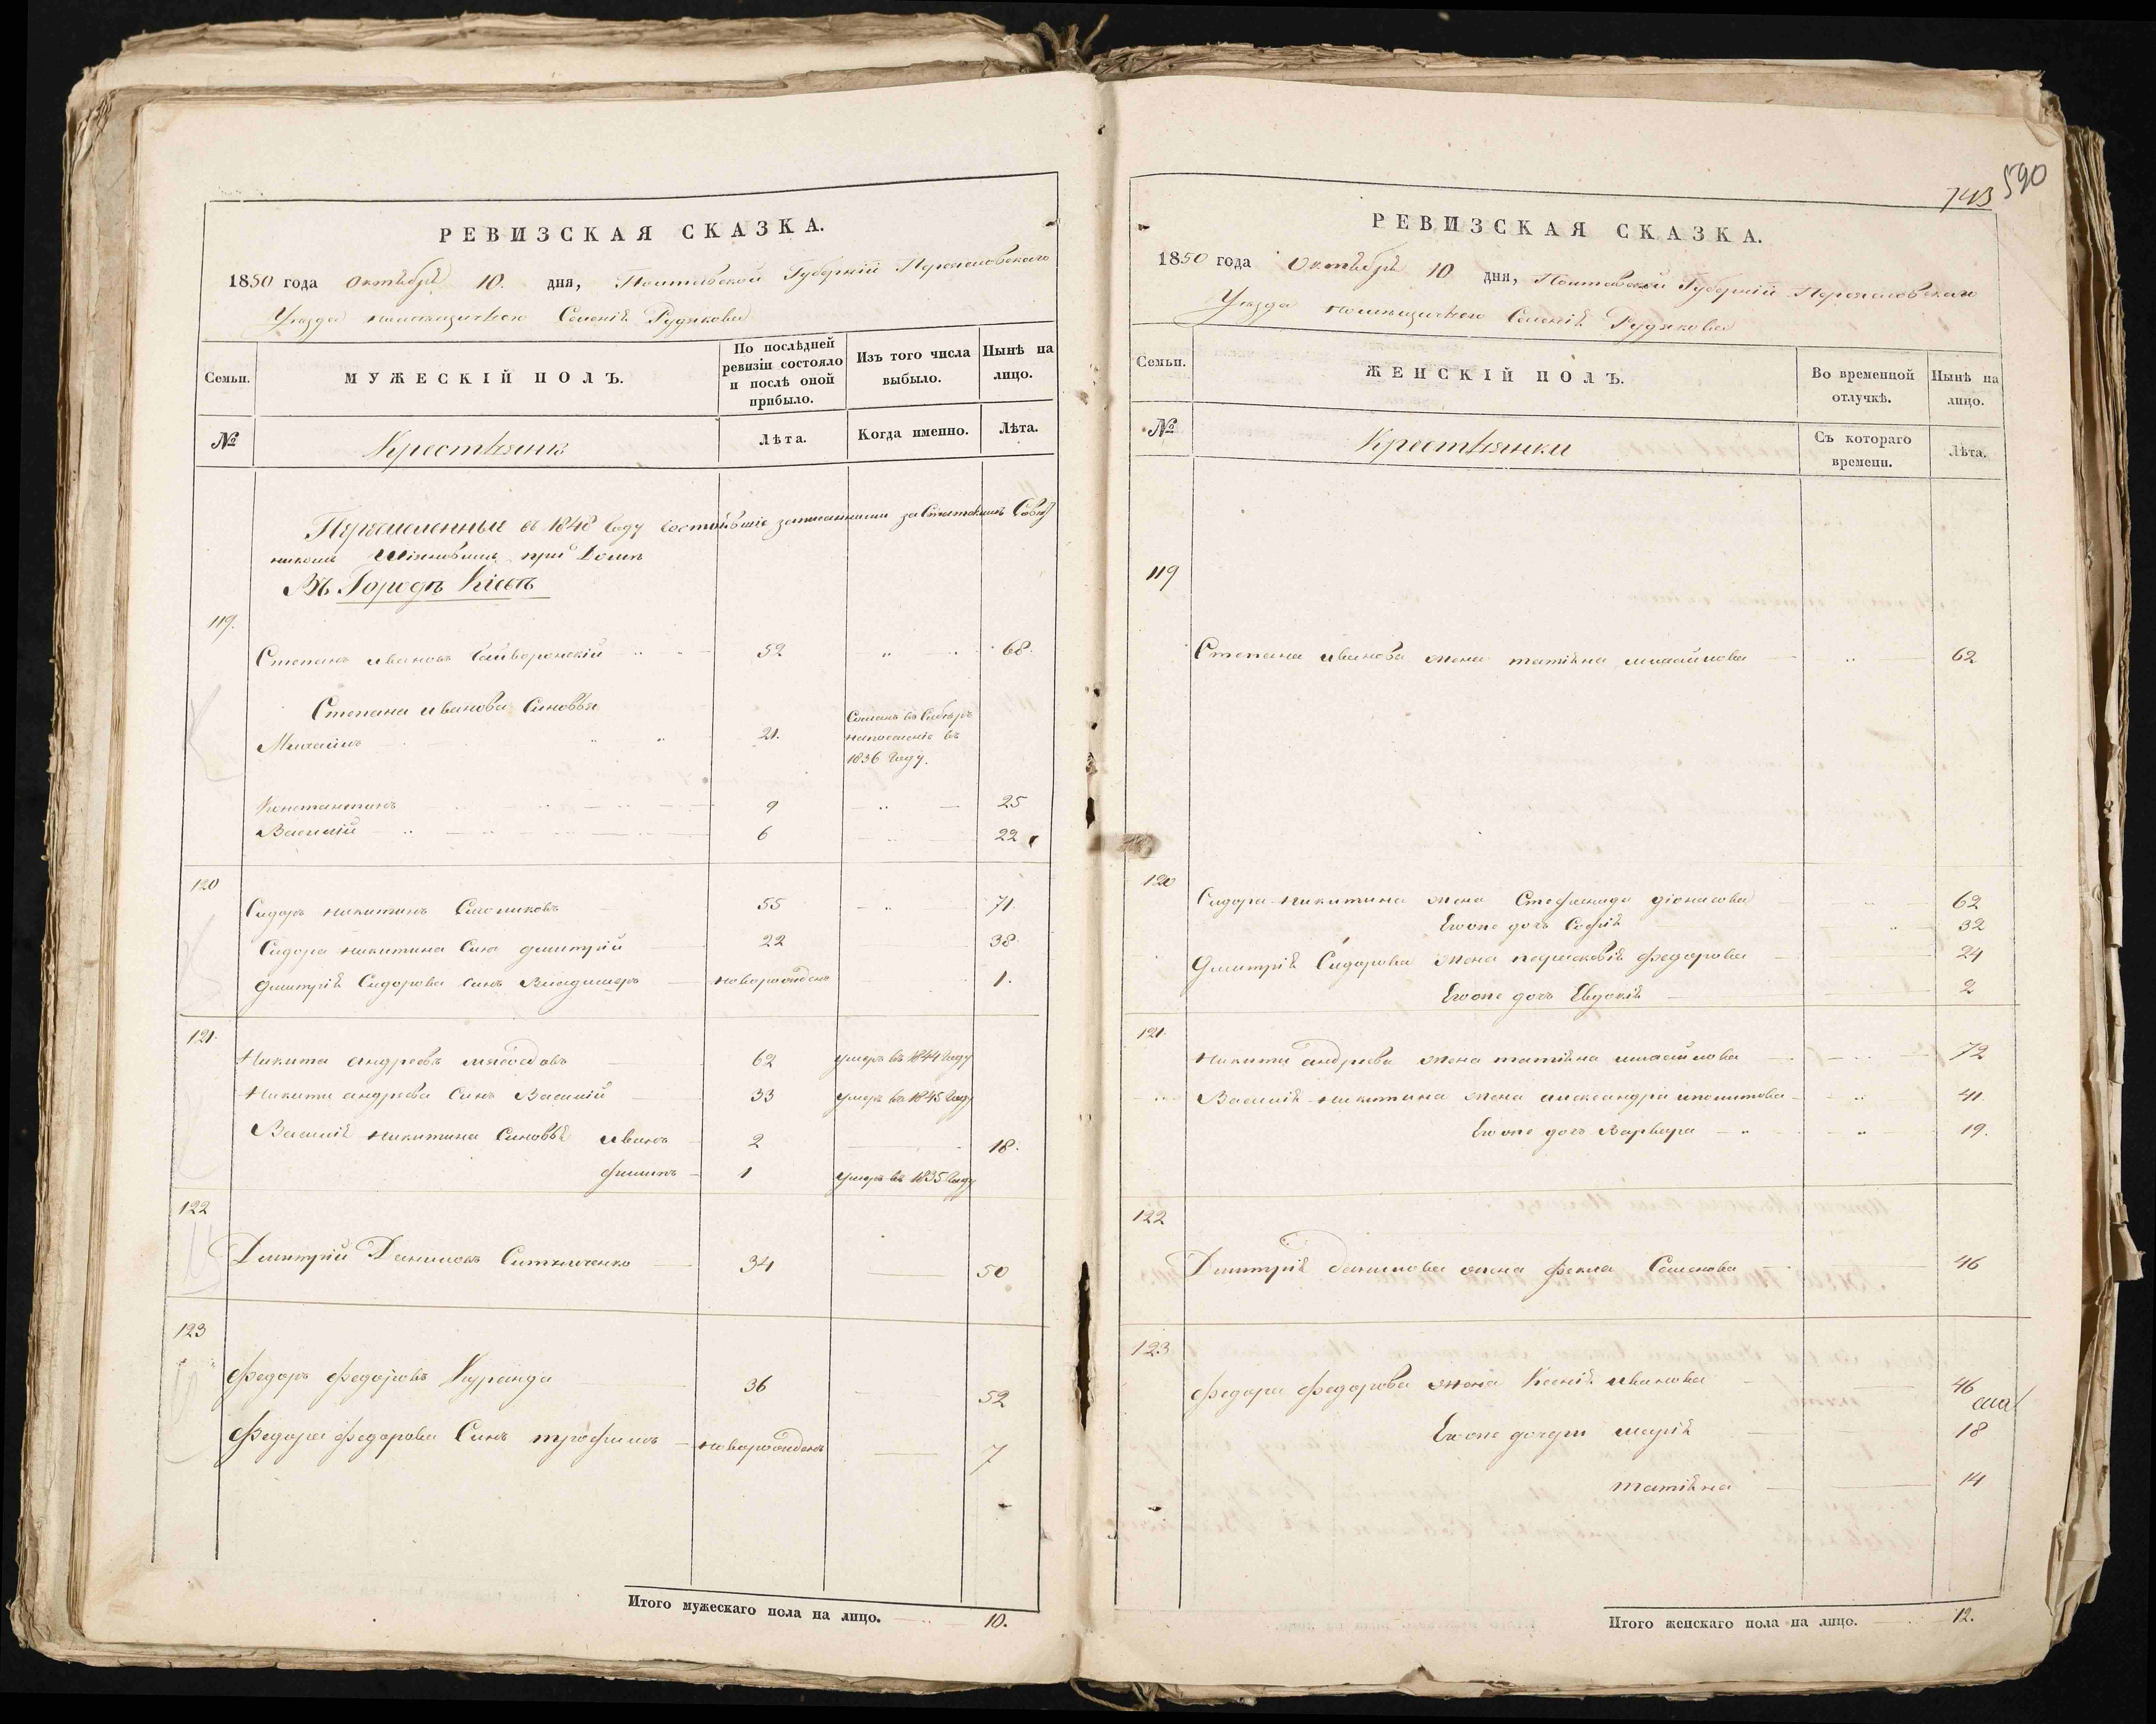 РЕВИЗСКАЯ СКАЗКА.
1850 года Октября 10. дня, Полтавской Губерніи Переяславскаго
Уезда помещицы Рудякова
Семьи.
МУЖЕСКІЙ ПОЛЪ.
По послѣдней ревизіи состояло и послѣ оной прибыло.
Изъ того числа выбыло.
Нынѣ на лицо.
№
Крестьянъ
Лѣта.
Когда именно.
Лѣта.
въ 1848 году записанными
при Доме
Въ Городѣ Кіевѣ
119.
Степанъ Ивановъ Гайворонскій 52 68.
Степана Иванова Сыновья
Михайло 21. Сосланъ въ Сибирь на поселеніе въ 1836 году.
Константинъ 9 25
Василій 6 22
120
Сидоръ Никитинъ 55 71.
Сидора Никитина Сынъ Дмитрій 22 38
Дмитрія Сидорова Сынъ Владимеръ новорожденъ 1.
121.
Никита Андреевъ 62 умеръ въ 1844 году
Никиты Андреева Сынъ Василій 33 умеръ въ 1845 году
Василія Никитина Сыновья Иванъ 2 18.
Филипъ 1 умеръ въ 1835 году
122
Дмитрій Даниловъ Ситниченко 34 50
123
Федоръ Федоровъ Куранда 36 52
Федора Федорова Сынъ Трофимъ новорожденъ 7
Итого мужескаго пола на лицо. 10.
590
743
РЕВИЗСКАЯ СКАЗКА.
1850 года Октября 10 дня, Полтавской Губерніи Переяславскаго
Уезда помещицы Рудякова
Семьи.
ЖЕНСКІЙ ПОЛЪ.
Во временной отлучкѣ.
Нынѣ на лицо.
№
Крестьянки
Съ котораго времени.
Лѣта.
119
Степана Иванова жена Татіяна Михайлова 62
120
Сидора Никитина жена Стефанида Діонисова 62
Ево дочь Софія 32
Дмитрія Сидорова жена Парасковія Федорова 24
Ево дочь Евдокія 2
121.
Никиты Андреева жена Татіяна Михайлова 72
Василія Никитина жена Александра Иполитова 41
Ево дочь Варвара 19.
122
Дмитрія Данилова жена Фекла Семенова 46
123
Федора Федорова жена Ксенія Иванова 46
Ево дочери Марія 18
Татіяна 14
Итого женскаго пола на лицо. 12.